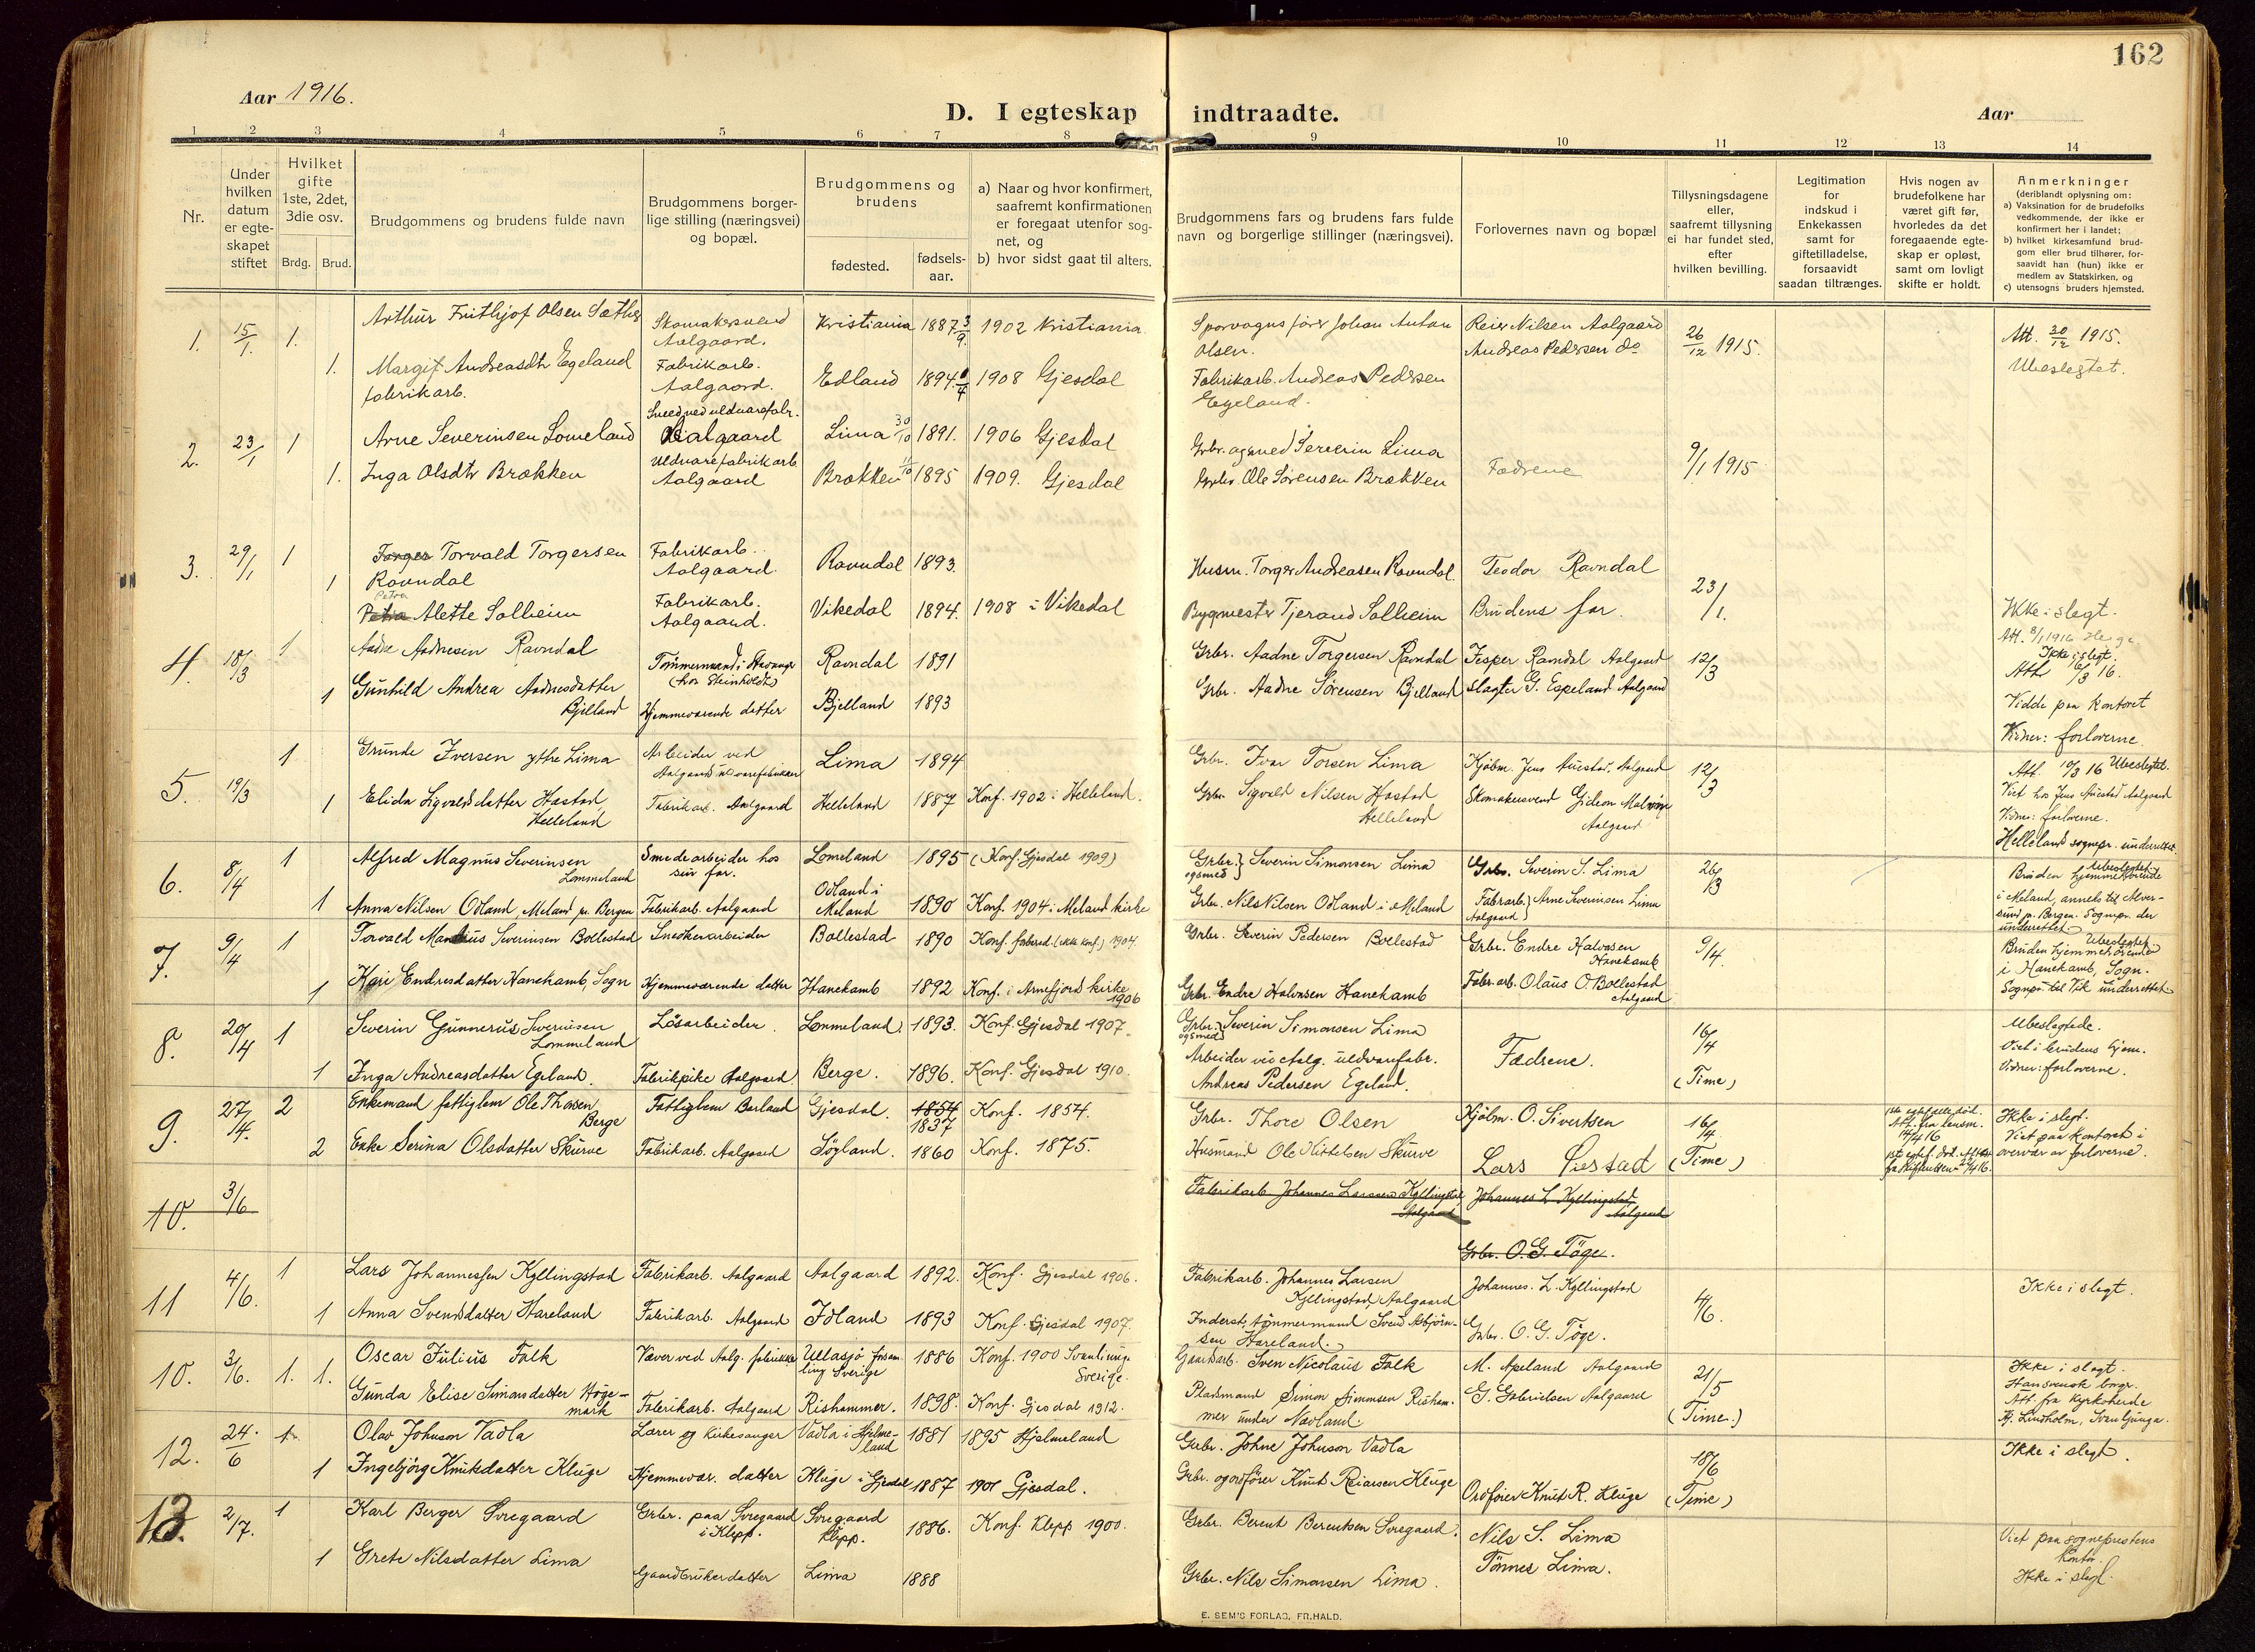 162
Aar 1916.
D. I egteskap indtraadte.
Aar
1 2 3 4 5 6 7 8 9 10 11 12 13 14
Nr.
Under hvilken datum er egte-skapet stiftet
Hvilket gifte 1ste, 2det, 3die osv.
Brdg. Brud.
Brudgommens og brudens fulde navn
Brudgommens borger-lige stilling (næringsvei) og bopæl.
Brudgommens og brudens
fødested.
fødsels-aar.
a) Naar og hvor konfirmert, saafremt konfirmationen er foregaat utenfor sog-net, og
b) hvor sidst gaat til alters.
Brudgommens fars og brudens fars fulde navn og borgerlige stillinger (næringsvei).
Forlovernes navn og bopæl
Tillysningsdagene eller, saafremt tillysning ei har fundet sted, efter hvilken bevilling.
Legitimation for indskud i Enkekassen samt for giftetilladelse, forsaavidt saadan tiltrænges.
Hvis nogen av brudefolkene har været gift før, hvorledes da det foregaaende egte-skap er opløst, samt om lovligt skifte er holdt.
Anmerkninger
(deriblandt oplysning om:
a) Vaksination for de brudefolks vedkommende, der ikke er konfirmert her i landet;
b) hvilket kirkesamfund brud-gom eller brud tilhører, for-saavidt han (hun) ikke er medlem av Statskirken, og
c) utensogns bruders hjemsted.
1. 15/1. 1. Arthur Frithjof Olsen Sæther Skomakersvend Aalgaard. Kristiania 1887 3/9. 1902 Kristiania Sporvognsfører Johan Anton Olsen. Reier Nilsen Aalgaard 26/12 1915. Att. 30/12 1915.
1. Margit Andreasdtr Egeland fabrikarb. Fabrikarb. Aalgaard. Edland 1894 1908 Gjesdal Fabrikarb. Andreas Pedersen Egeland. Andreas Pedersen do Ubeslegtet.
2. 23/1 1 Arne Severinsen Lomeland Smed ved uldvarefabr. Aalgaard Lima 30/10 1891. 1906 Gjesdal Grbr. og smed Severin Lima Fædrene 9/1 1915
1. Inga Olsdtr Brækken Uldvarefabrikarb Aalgaard Brækken 11/10 1895 1909. Gjesdal Grbr. Ole Sørensen Brækken
3. 29/1 1 Torger Torvald Torgersen Ravndal Fabrikarb. Aalgaard. Ravndal 1893. Husm. Torger Andreasen Ravndal Teodor Ravndal 23/1.
1 Petra Petra Alette Solheim Fabrikarb. Aalgaard. Vikedal 1894. 1908 i Vikedal Bygmester Tjerand Solheim Brudens far. Ikke i slegt. Att. 8/1 1916
4. 18/3 1 Aadne Aadnesen Ravndal Tømmermand i Stavanger (hos Steinholdt) Ravndal 1891 Grbr. Aadne Torgersen Ravndal Jesper Ravndal Aalgaard 12/3 Ikke i slegt. Att 6/3 16.
1 Gunhild Andrea Aadnesdatter Bjelland Hjemmeværende datter Bjelland 1893 Grbr. Aadne Sørensen Bjelland Slagter G. Espeland Aalgaard Viedde paa kontoret Vidner: forloverne.
5. 19/3 1 Grunde Iversen ytre Lima Arbeider ved Aalgaards uldvarefabriker Lima 1894 Grbr. Ivar Torsen Lima Kjøbm. Jens Auestad, Aalgaard 12/3 Att. 10/3 16 Ubeslegtet.
1 Elida Sigvaldsdatter Hæstad, Helleland Fabrikarb. Aalgaard Helleland 1887 Konf. 1902 i Helleland. Grbr Sigvald Nilsen Hæstad Helleland Skomakersvend Gideon Malmin Aalgaard Viet hos Jens Auestad Aalgaard Vidner: forloverne. Helleland sognepr. underrettet
6. 8/4 1 Alfred Magnus Severinsen Lommeland Smedearbeider hos sin far. Lomeland 1895 (Konf. Gjesdal 1909) Grbr. og smed} Severin Simonsen Lima Grbr. Severin S. Lima 26/3 Ubeslegtet
1 Anna Nilsen Odland, Meland pr. Bergen Fabrikarb. Aalgaard Odland i Meland 1890 Konf. 1904 i Meland kirke Grbr. Nils Nilsen Odland i Meland Fabrarb. Aalgaard} Arne Severinsen Lima Bruden hjemmehørende i Meland, anneks til Alver-sund p. Bergen. Sognepr. der underrettet.
7. 9/4 1 Torvald Severinsen Bollestad Snedkerarbeider Bollestad 1890 Konf. forbered. (ikke konf.) 1904. Grbr. Severin Pedersen Bollestad Grbr. Endre Halvorsen Hanekamb 9/4. Ubeslegtet.
1 Kari Endresdatter Hanekamb, Sogn Hjemmeværende datter Hanekamb 1892 Konf. i Arnefjord kirke 1906 Grbr. Endre Halvorsen Hanekamb Fabr.arb. Olaus O. Bollestad Aalgaard Bruden hjemmehørende i Hanekamb, Sogn. Sognepr. til Vik underrettet
8. 20/4 1 Severin Gunnerus Severinsen Lommeland Løsarbeider. Lommeland. 1893. Konf. Gjesdal 1907. Grbr. og smed} Severin Simonsen Lima Fædrene. 16/4 (Time) Ubeslegtede.
1 Inga Andreasdatter Egeland. Fabrikpike Aalgaard Berge. 1896. Konf. Gjesdal 1910. Arbeider ved Aalg. uldvarefabr. Andreas Pedersen Egeland. Viet i brudens hjem. Vidner: forloverne.
9. 27/4. 2 Enkemand fattiglem Ole Thorsen Berge Fattiglem Berland Gjesdal. 1854 1837 Konf. 1854. Grbr. Thore Olsen Kjøbm. O. Sivertsen 16/4 (Time) 1ste egtefælle død. Att. fra lensm. 14/4 16 Ikke i slegt.
2 Enke Serina Olsdatter Skurve Fabrikarb. Aalgaard Søyland. 1860 Konf. 1875. Husmand Ole Kittelsen Skurve Lars Viet paa kontoret i overvær av forloverne.
10. 3/6 Fabrikarb. Johannes Larssen Kyllingstad, Aalgaard Johannes L. Kyllingstad, Aalgaard
Grbr. O. G. Tøge.
11 4/6. 1 Lars Johannessen Kyllingstad Fabrikarb. Aalgaard Aalgaard 1892. Konf. Gjesdal 1906. Fabrikarb. Johannes Larsen Kyllingstad, Aalgaard Johannes. L. Kyllingstad 4/6. Ikke i slegt.
1 Anna Svendsdatter Hareland Fabrikarb. Aalgaard Idland 1893 Konf. Gjesdal 1907. Inderst, tømmermand Svend Asbjørn-sen Hareland. Grbr. O. G. Tøge.
10. 3/6. 1. 1. Oscar Julius Falk Væver ved Aalg. fabrikke Ullasjö forsam-ling Sverige 1886 Konf. 1900 Svenljunga Sverige. Gaardsarb. Sven Nicolaus Falk M. Apeland Aalgaard 21/5 (Time.) Ikke i slegt.
Gunda Elise Simonsdatter Høge-mark Fabrikarb. Aalgaard Rishammer. 1898. Konf. Gjesdal 1912. Pladsmand Simon Simonsen Risham-mer under Nævland. G. Gabrielsen Aalgaard Han svensk borger. Att. fra Kyrkoherde Lindholm, Svenljunga.
12. 24./6 1. Olav Johnson Vadla Lærer og kirkesanger Vadla i Hjelme-land 1881 1895 Hjelmeland Grbr. Johne Johnson Vadla 18/6 (Time) Ikke i slegt.
1 Ingebjørg Knutsdatter Kluge Hjemmevær. datter Kluge i Gjesdal 1887 1901 Gjesdal. Grbr. og ordfører Knut Reiarsen Kluge Ordfører Knut R. Kluge
13. 2/7. 1 Karl Berger Særegaard Grbr. paa Særegaard i Klepp. Særegaard Klepp. 1886. Konf. Klepp 1900. Grbr. Berent Berentsen Særegaard. Nils S. Lima Viet paa sogneprestens kontor.
1 Grete Nilsdatter Lima Gaardbrukerdatter Lima 1888 Grbr. Nils Simonsen Lima. Tønnes Lima. Ikke i slegt.
E. SEM'S FORLAG, FR.HALD.